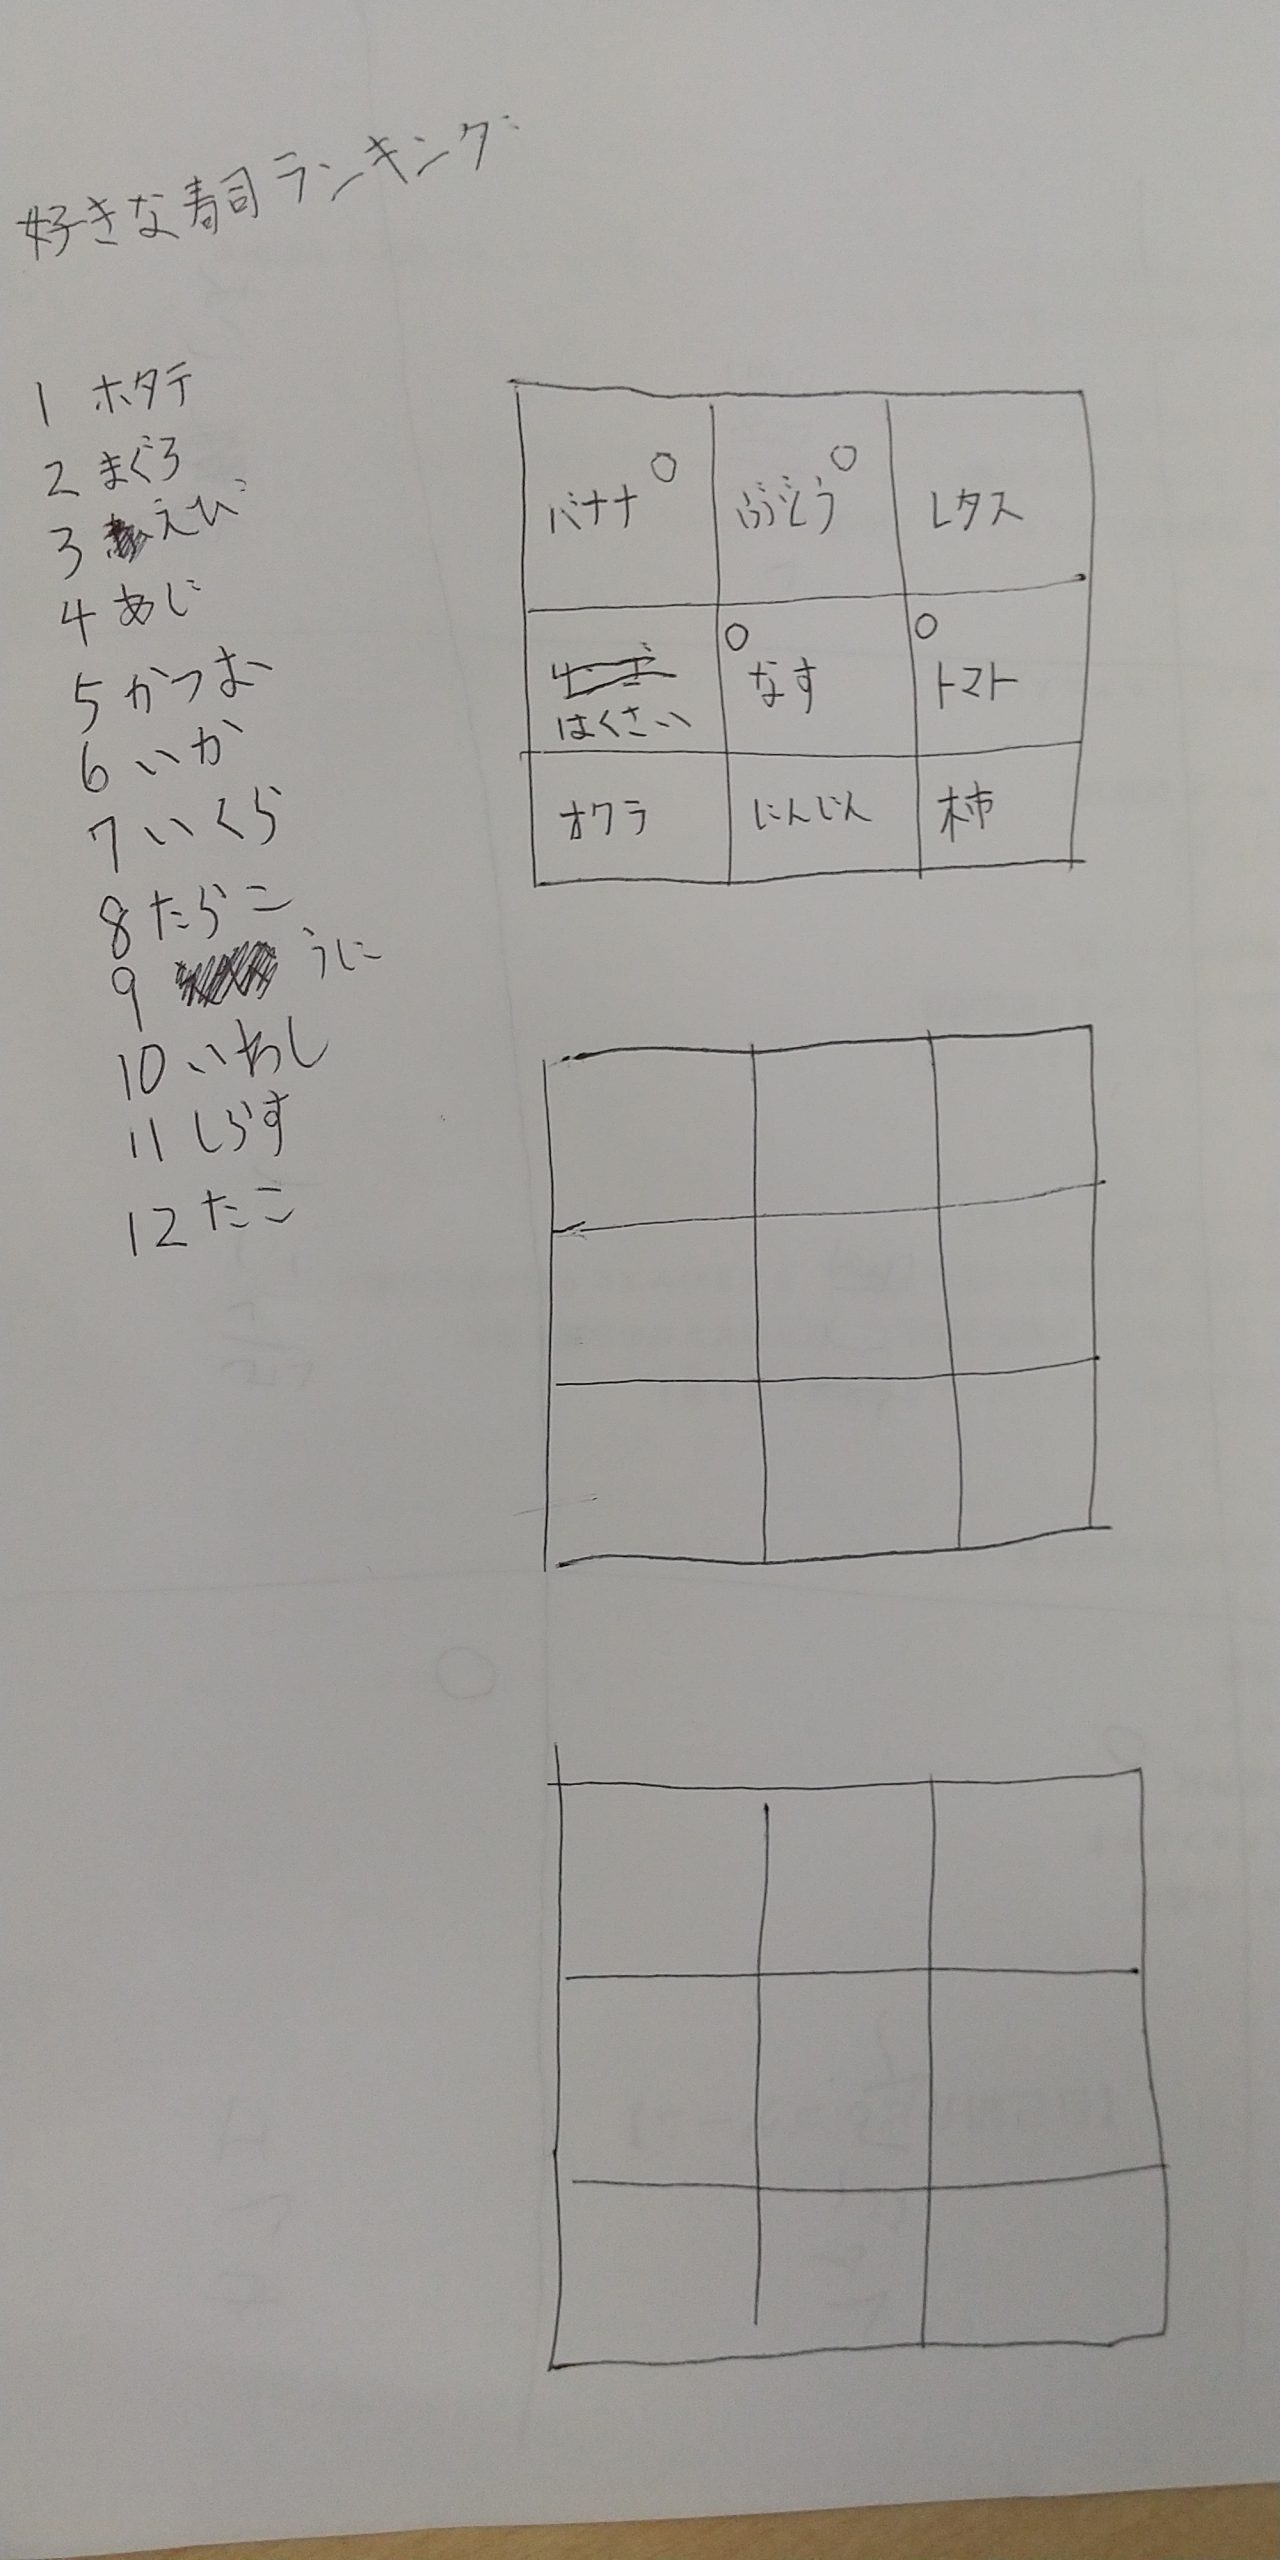 好きな寿司ランキング
1 ホタテ
2 まぐろ
3 えび
4 あじ
5 かつお
6 いか
7 いくら
8 たらこ
9 うに
10 いわし
11 しらす
12 たこ
バナナ ○ ぶどう ○ レタス
はくさい ○ なす ○ トマト
オクラ にんじん 柿